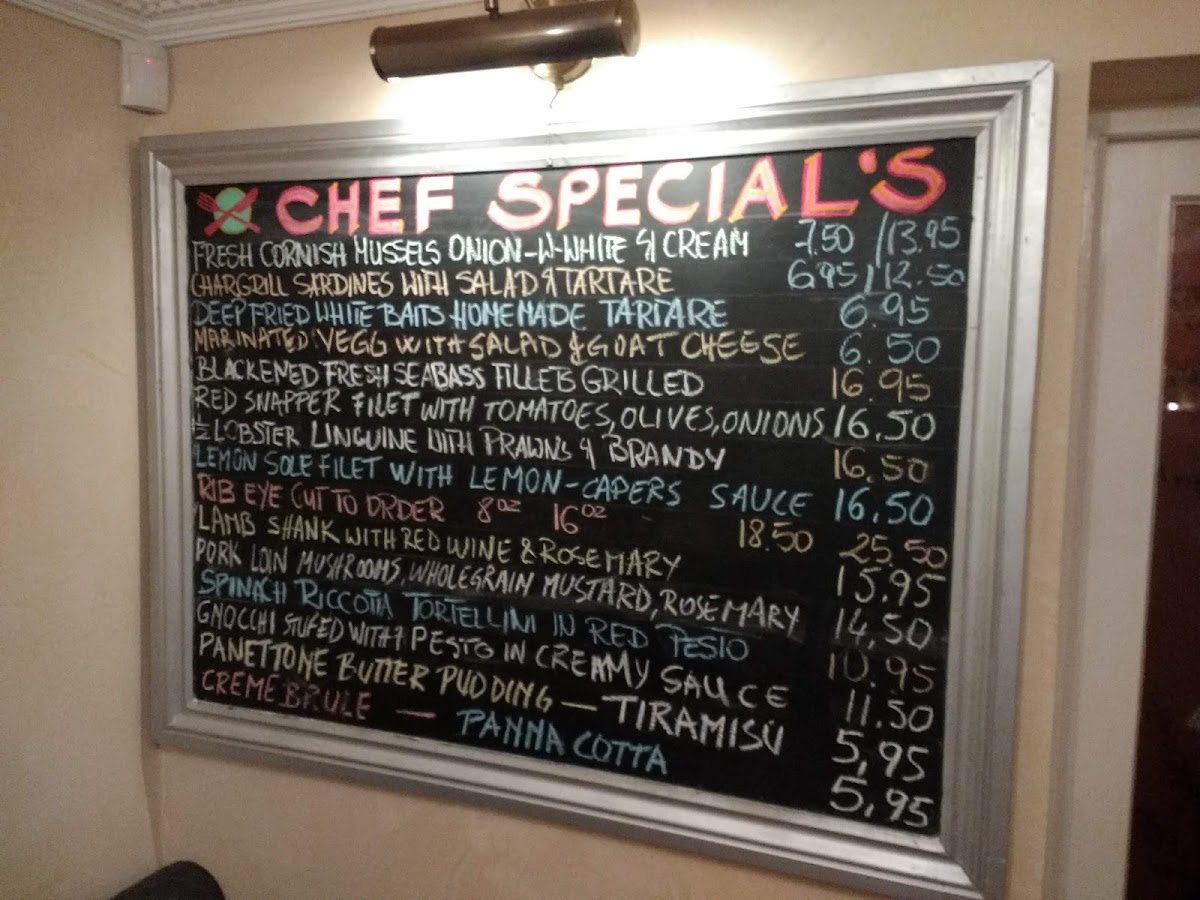 CHEF SPECIAL'S
FRESH CORNISH MUSSELS ONION-W-WHITE & CREAM 7.50 / 13.95
CHARGRILL SARDINES WITH SALAD & TARTARE 6.95 / 12.50
DEEP FRIED WHITE BAITS HOMEMADE TARTARE 6.95
MARINATED VEGG WITH SALAD & GOAT CHEESE 6.50
BLACKENED FRESH SEABASS FILLETS GRILLED 16.95
RED SNAPPER FILET WITH TOMATOES, OLIVES, ONIONS 16.50
½ LOBSTER LINGUINE WITH PRAWNS & BRANDY 16.50
LEMON SOLE FILET WITH LEMON-CAPERS SAUCE 16.50
RIB EYE CUT TO ORDER 8oz 16oz 18.50 25.50
LAMB SHANK WITH RED WINE & ROSEMARY 15.95
PORK LOIN MUSHROOMS, WHOLEGRAIN MUSTARD, ROSEMARY 14,50
SPINACH RICCOTTA TORTELLINI IN RED PESTO 10.95
GNOCCHI STUFED WITH PESTO IN CREAMY SAUCE 11.50
PANETTONE BUTTER PUDDING — TIRAMISÚ 5,95
CREME BRULE — PANNA COTTA 5,95